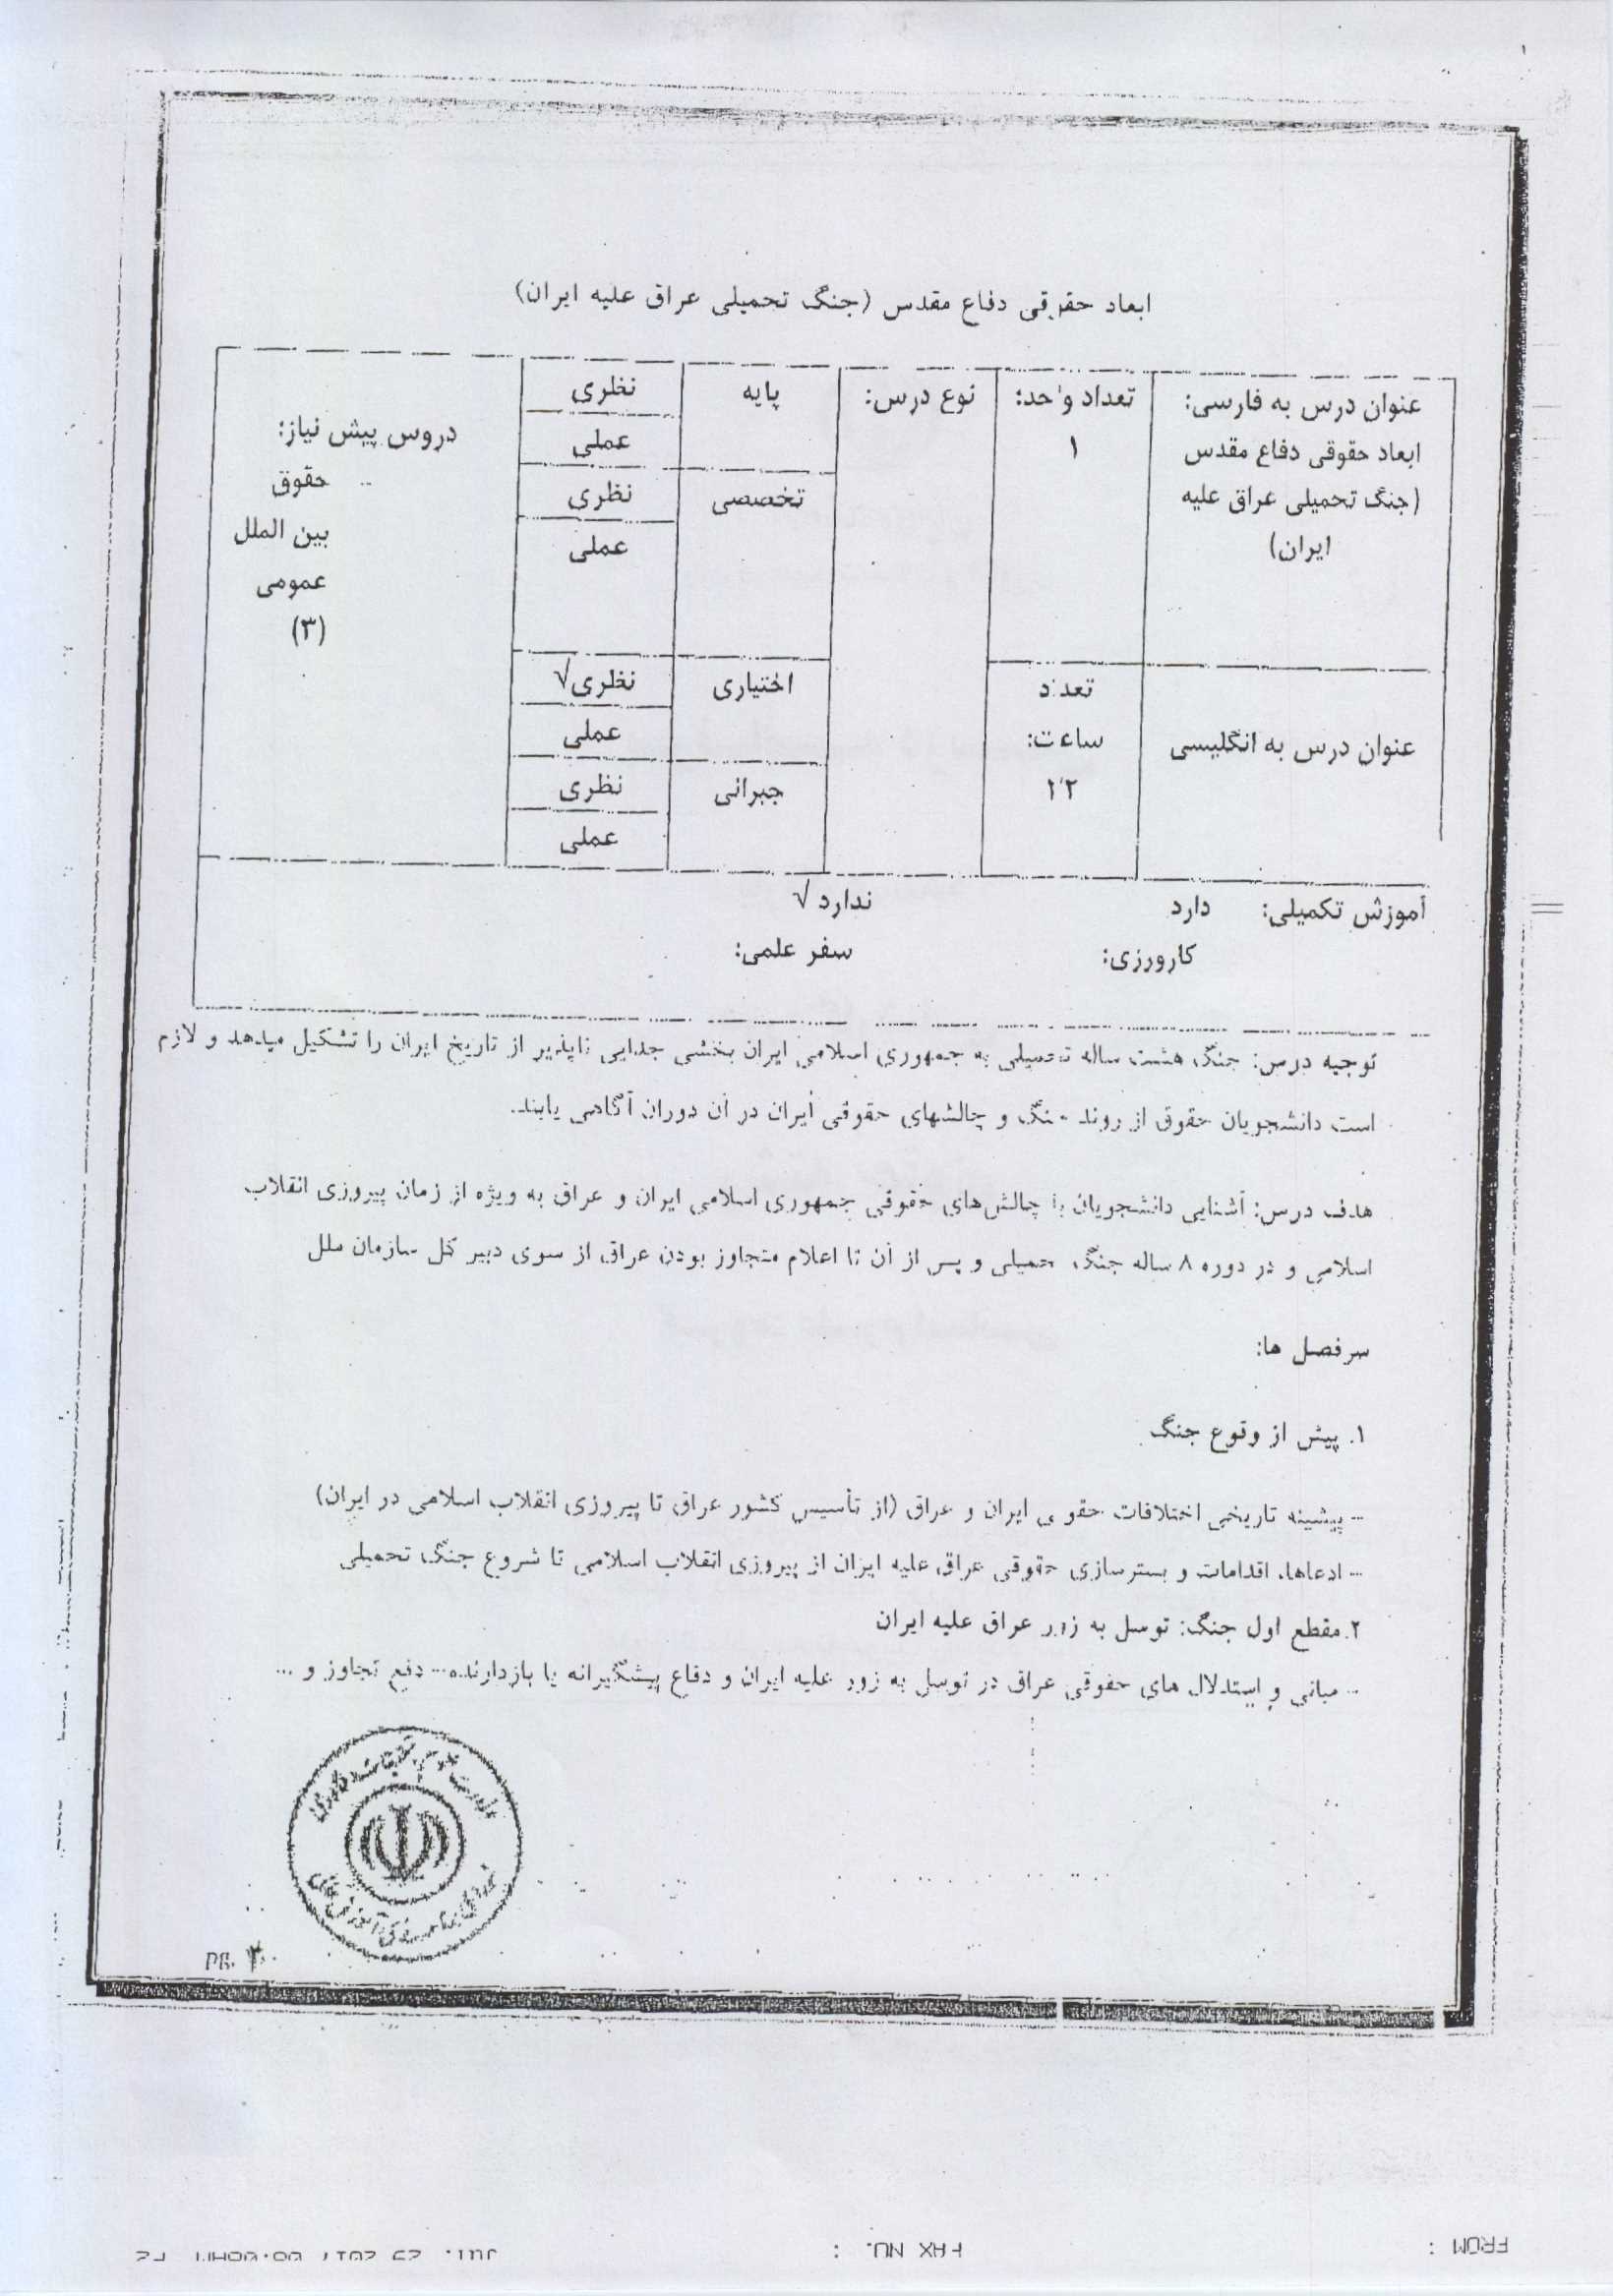 ابعاد حقوقی دفاع مقدس (جنگ تحمیلی عراق علیه ایران)
عنوان درس به فارسی:
ابعاد حقوقی دفاع مقدس
(جنگ تحمیلی عراق علیه
ایران)
تعداد واحد:
۱
نوع درس:
پایه
نظری
عملی
تخصصی
نظری
عملی
اختیاری
نظری√
عملی
جبرانی
نظری
عملی
دروس پیش نیاز:
حقوق
بین الملل
عمومی
(۳)
عنوان درس به انگلیسی
تعداد
ساعت:
آموزش تکمیلی: دارد ندارد √
کارورزی: سفر علمی:
توجیه درس: جنگ هشت ساله تحمیلی به جمهوری اسلامی ایران بخشی جدایی ناپذیر از تاریخ ایران را تشکیل میدهد و لازم
است دانشجویان حقوق از روند جنگ و چالشهای حقوقی ایران در آن دوران آگاهی یابند.
هدف درس: آشنایی دانشجویان با چالش‌های حقوقی جمهوری اسلامی ایران و عراق به ویژه از زمان پیروزی انقلاب
اسلامی و در دوره ۸ ساله جنگ تحمیلی و پس از آن تا اعلام متجاوز بودن عراق از سوی دبیر کل سازمان ملل
سرفصل ها:
۱. پیش از وقوع جنگ
- پیشینه تاریخی اختلافات حقوقی ایران و عراق (از تأسیس کشور عراق تا پیروزی انقلاب اسلامی در ایران)
- ادعاها، اقدامات و بسترسازی حقوقی عراق علیه ایران از پیروزی انقلاب اسلامی تا شروع جنگ تحمیلی
۲. مقطع اول جنگ: توسل به زور عراق علیه ایران
- مبانی و استدلال های حقوقی عراق در توسل به زور علیه ایران و دفاع پیشگیرانه یا بازدارنده- دفع تجاوز و ...
وزارت علوم تحقیقات و فناوری
شورای برنامه ریزی آموزش عالی
FROM :
FAX NO. :